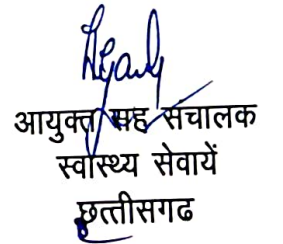 आयुक्त सह संचालक
स्वास्थ्य सेवायें
छत्तीसगढ